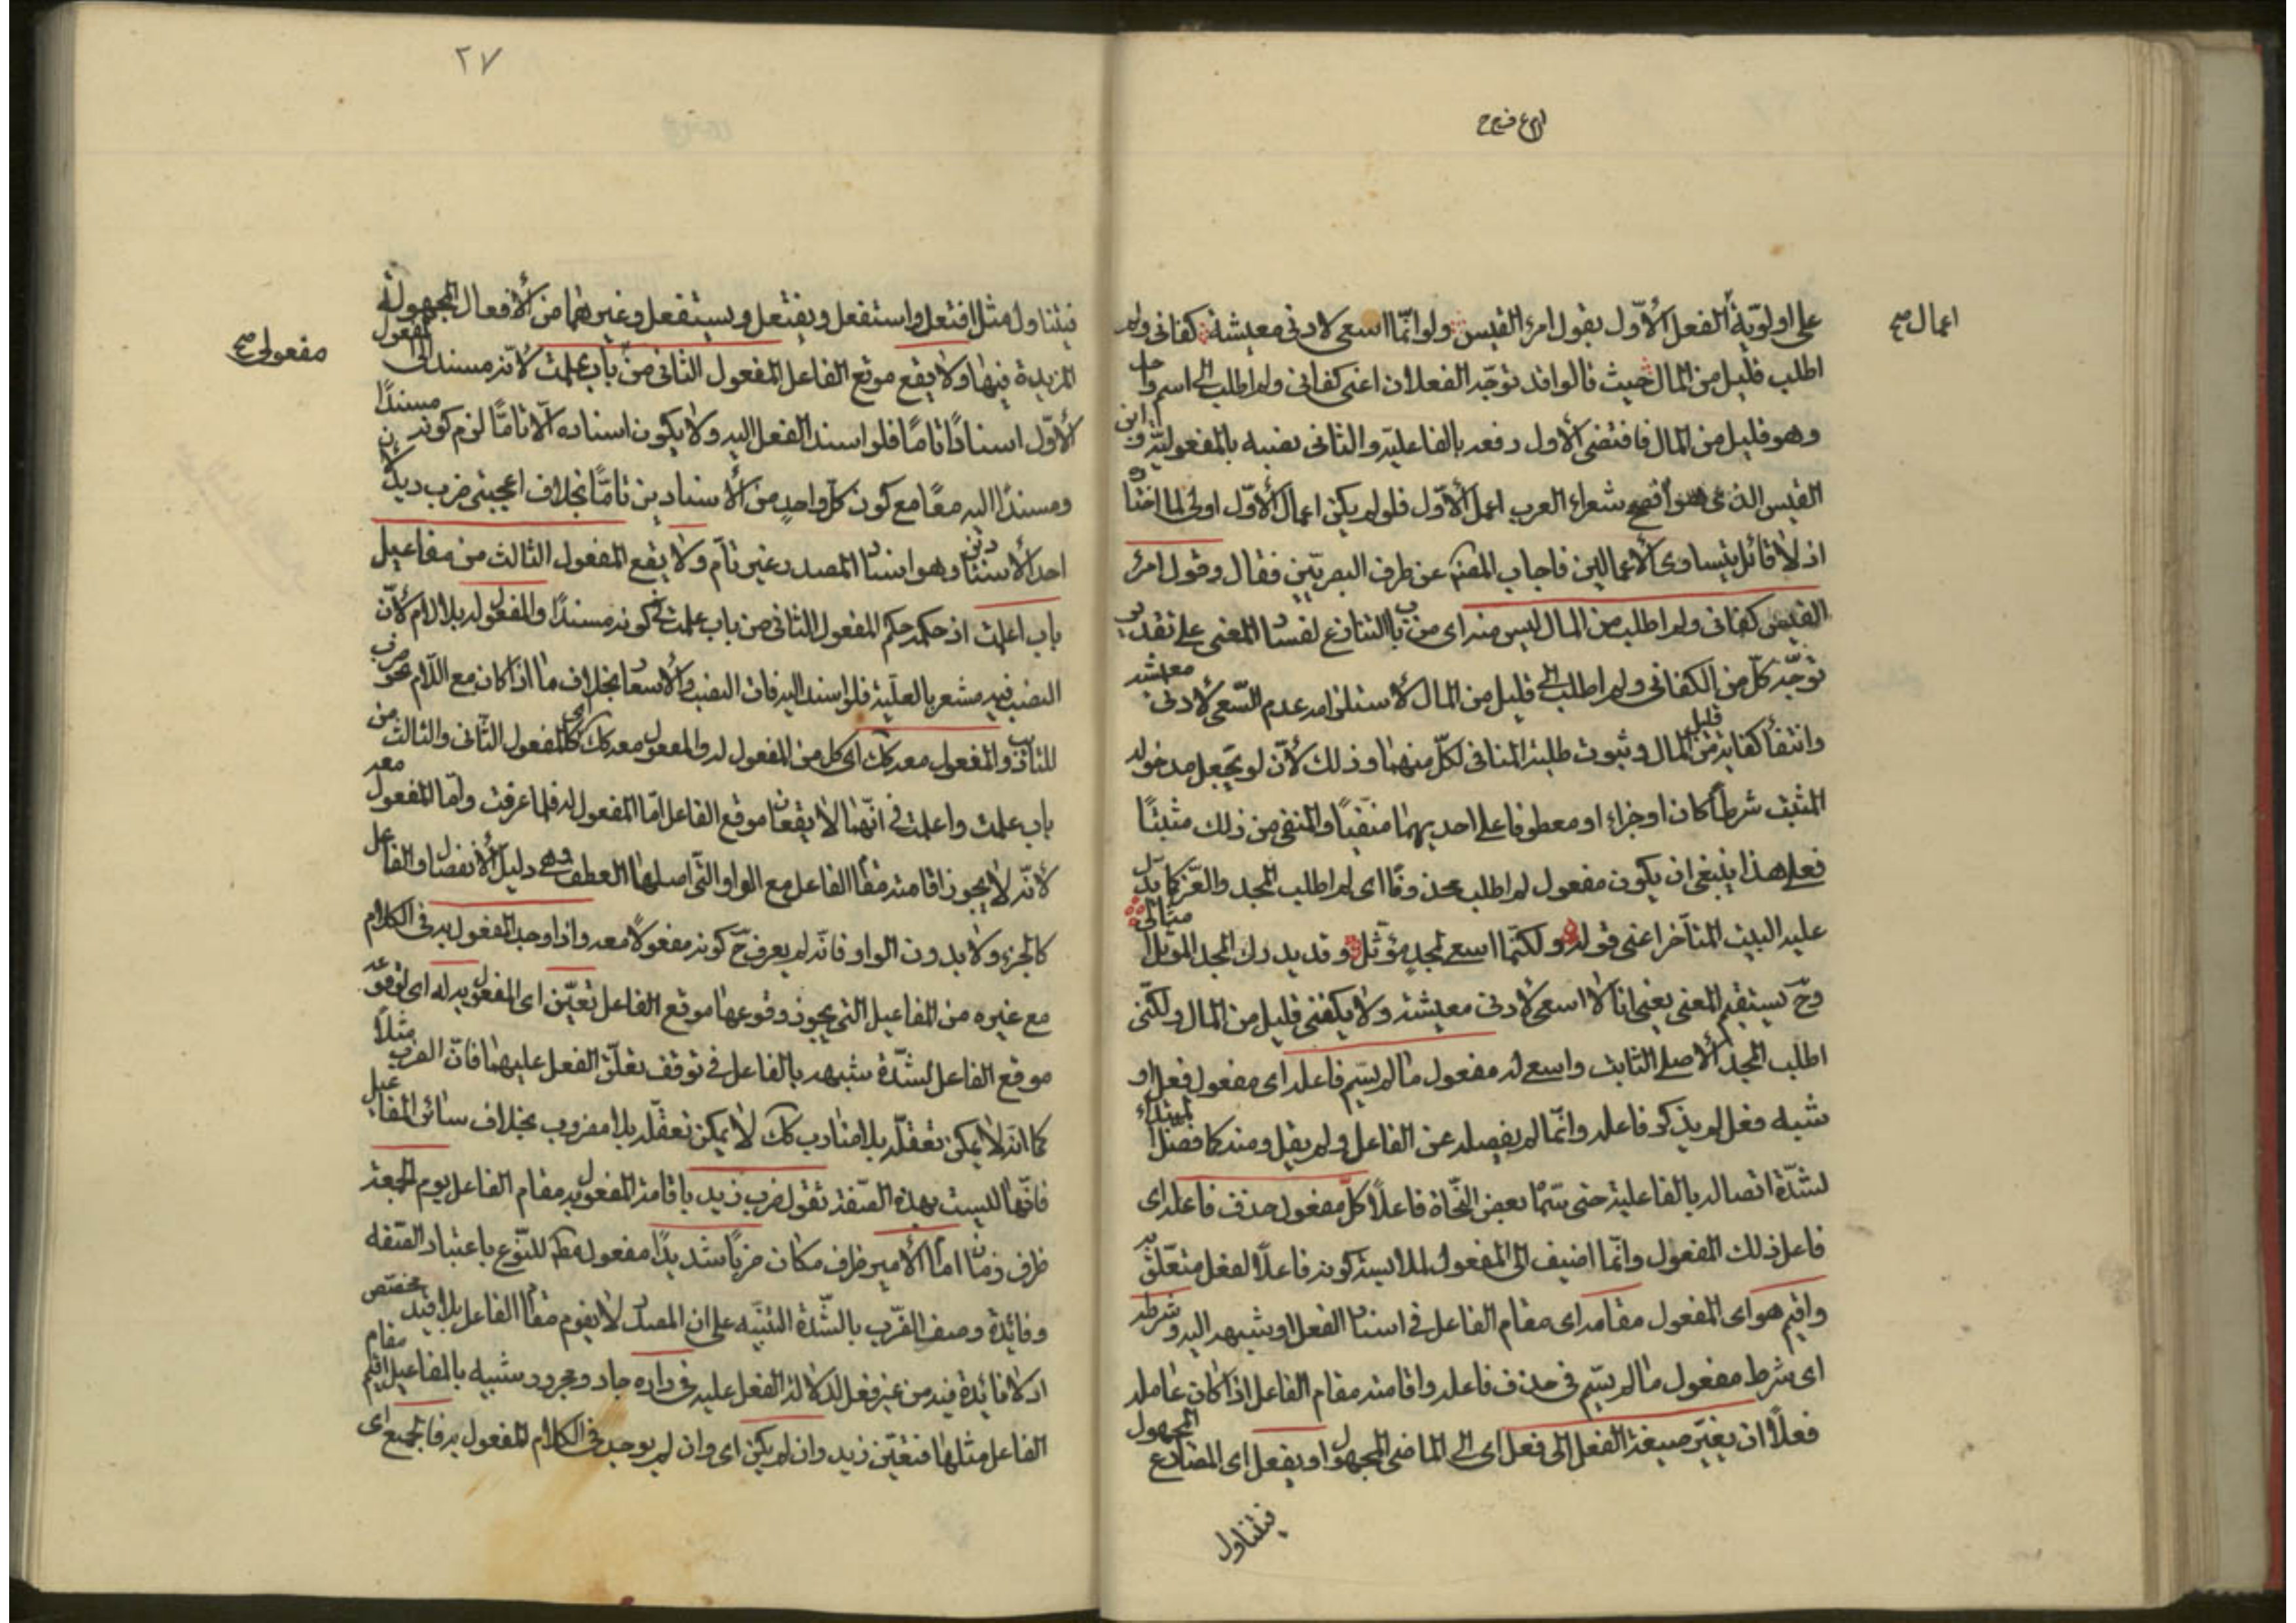 اعمال صح
على اولوية الفعل الأوّل بقول امرئ القيس ولو انّما اسعى لادنى معيشة كفانى ولم
اطلب قليل من المال حيث قالوا قد توجّه الفعلان اعنى كفانى ولم اطلب الى اسم واحد
وهو قليل من المال فاقتضى الأول رفعه بالفاعليّة والثانى نصبه بالمفعوليّة وامرئ
القيس الذى هو افصح شعراء العرب اعمل الأوّل فلو لم يكن اعمال الأوّل اولى لما اختاره
اذ لا قائل بتساوى الأعمالين فاجاب المصنف عن طرف البصريّين فقال وقول امرئ
القيس كفانى ولم اطلب من المال ليس منه اى من باب التنازع لفساد المعنى على تقدير
توجّه كلّ من الكفانى ولم اطلب الى قليل من المال لاستلزامه عدم السّعى لادنى معيشة
وانتفاء كفايته من قليل المال وثبوت طلبه المنافى لكلّ منهما وذلك لأنّ لو يجعل مدخوله
المثبت شرطًا كان او جزاء او معطوفا على احديهما منفيًا والمنفى من ذلك مثبتًا
فعلى هذا ينبغى ان يكون مفعول لم اطلب محذوفًا اى لم اطلب المجد والعزّ كما يدلّ
عليه البيت المتأخر اعنى قوله ولكنّما اسعى لمجدٍ مؤثّل وقد يدرك المجد المؤثل امثالى
وح يستقيم المعنى يعنى انا لا اسعى لادنى معيشة ولا يكفنى قليل من المال ولكنّى
اطلب المجد الأصلى الثابت واسعى له مفعول ما لم يسّم فاعله اى مفعول فعل او
شبه فعل لم يذكر فاعله وانّما لم يفصله عن الفاعل ولم يقل ومنه كما فصّل المبتداء
لشدّة اتصاله بالفاعلية حتى سمّاه بعض النحّاة فاعلاً كلّ مفعول حذف فاعله اى
فاعل ذلك المفعول وانّما اضيف الى المفعول لملابسة كونه فاعلاً لفعل متعلّق به
واقيم هو اى المفعول مقامه اى مقام الفاعل فى اسناد الفعل او شبهه اليه وشرطه
اى شرط مفعول ما لم يسّم فى حذف فاعله واقامته مقام الفاعل اذا كان عامله
فعلاً ان يغيّر صيغة الفعل الى فعل اى الى الماضى المجهول او يفعل اى المضارع المجهول
فيتناول
٢٧
مفعولى صح
فيتناول مثل افتعل واستفعل ويفتعل ويستفعل وغيرهما من الأفعال المجهولة
المزيدة فيها ولا يقع موقع الفاعل المفعول الثانى من باب علمت لانّه مسند الى المفعول
الأوّل اسنادًا تامًا فلو اسند الفعل اليه ولا يكون اسناده الّا تامًّا لزم كونه مسندًا
ومسندًا اليه معًا مع كون كلّ واحدٍ من الأسنادين تامًّا بخلاف اعجبنى ضرب زيد لأن
احد الأسنادين وهو اسناد المصدر غير تامّ ولا يقع المفعول الثالث من مفاعيل
باب اعلمت اذ حكمه حكم المفعول الثانى من باب علمت فى كونه مسندًا والمفعول له بلا لام لأنّ
النصب فيه مشعر بالعلّية فلو اسند اليه فات النصب والأشعار بخلاف ما اذا كان مع اللّام نحو ضرب
للتاديب والمفعول معه كك اى كل من المفعول له والمفعول معه كك اى كالمفعول الثّانى والثالث من
باب علمت واعلمت فى انّهما لا يقعان موقع الفاعل امّا المفعول له فلما عرفت وامّا المفعول معه
لأنّه لا يجوز اقامته مقام الفاعل مع الواو التى اصلها العطف وهى دليل الأنفصال والفاعل
كالجزء ولا بدون الواو فانّه لم يعرف ح كونه مفعولاً معه واذا وجد المفعول به فى الكلام
مع غيره من المفاعيل التى يجوز وقوعها موقع الفاعل تعيّن اى المفعول به له اى لوقوعه
موقع الفاعل لشدّة شبهه بالفاعل فى توقف تعلّق الفعل عليهما فانّ الضرب مثلاً
كما انّه لا يمكن تعقّله بلا ضارب كك لا يمكن تعقّله بلا مضروب بخلاف سائر المفاعيل
فانّها ليست بهذه الصّفة تقول ضرب زيد باقامة المفعول به مقام الفاعل يوم الجمعة
ظرف زمان امام الأمير ظرف مكان ضربًا شديدًا مفعول مط للنّوع باعتبار الصّفة
وفائدة وصف الضّرب بالشّدة التنبّيه على ان المصدر لا يقوم مقام الفاعل بلا قيد مخصّص
اذ لا فائدة فيه من غير فعل لدلالة الفعل عليه فى داره جار ومجرور شبيه بالمفاعيل اقيم مقام
الفاعل مثلها فتعّين زيد وان لم يكن اى وان لم يوجد فى الكلام المفعول به فالجميع اى